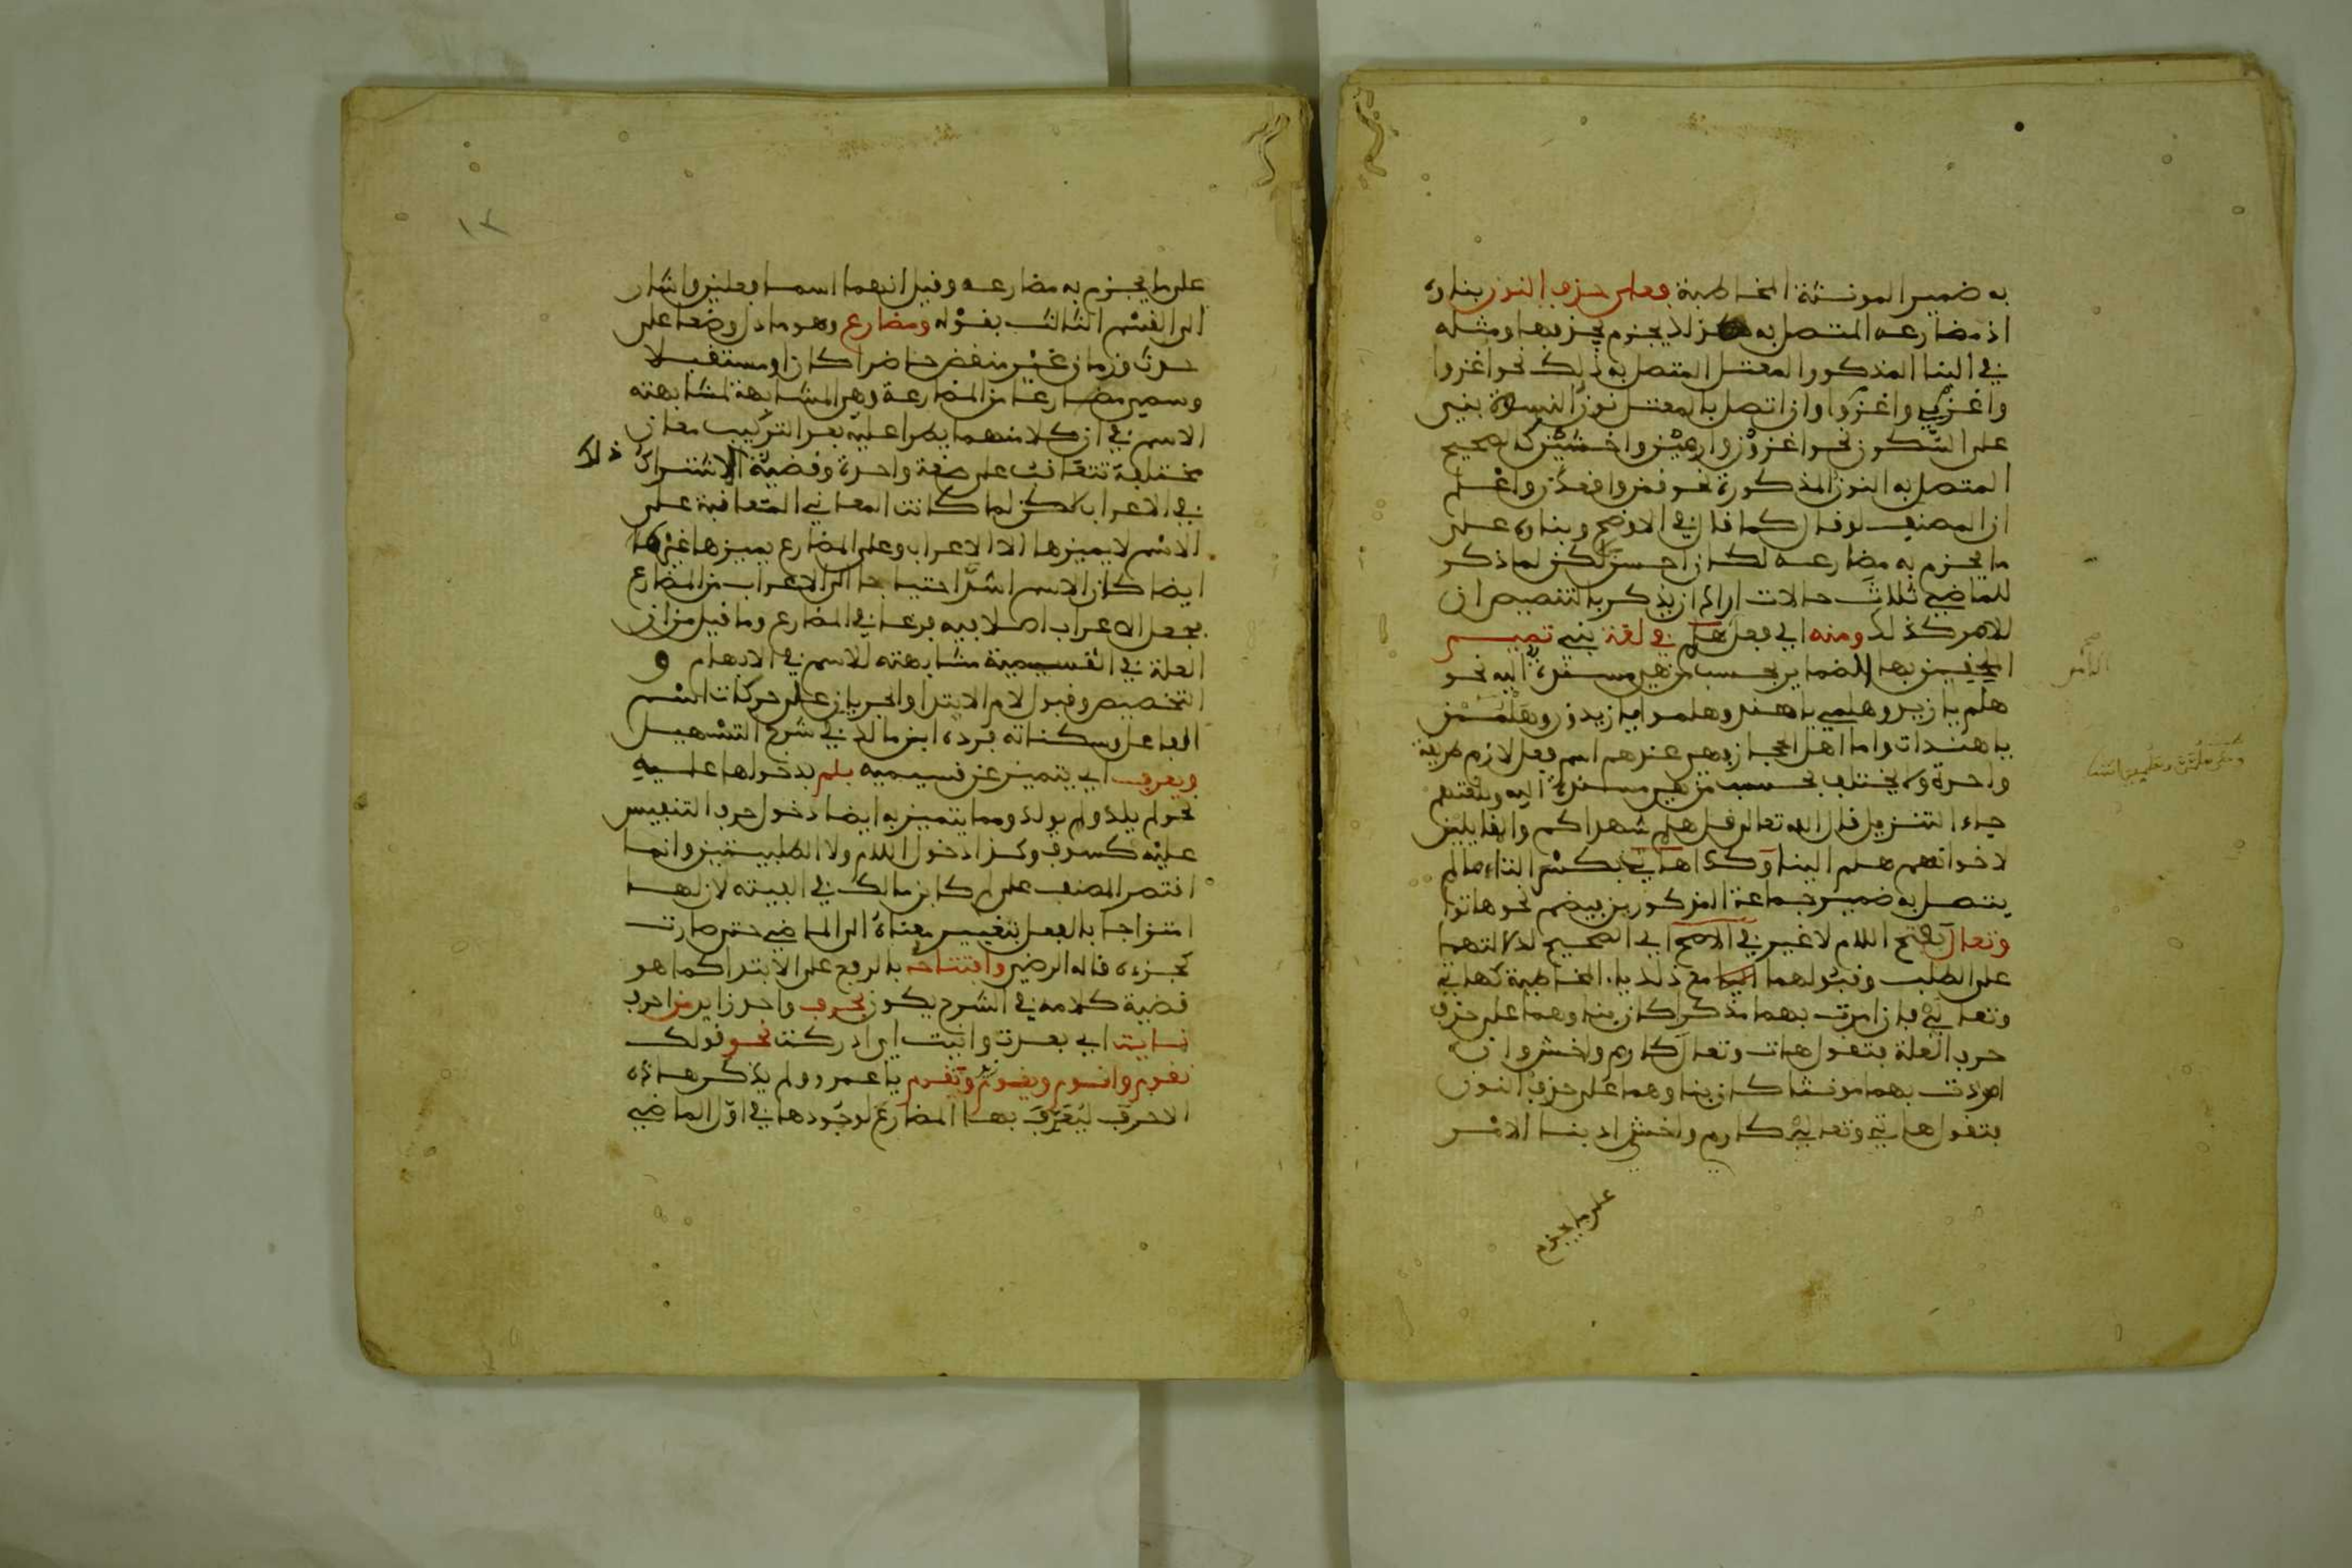 به ضمير المونثة المخاطبة فعلى حذف النون بناوه
اذ مضارعه المتصل به يجزم بحذفها ومثله
في البنا المذكور المعتل المتصل به ذلك نحو اغزوا
واغزي واغزوا وان اتصل بالمعتل نون النسوة بني
على السكون نحو اغزون وارمين واخشين كالصحيح
المتصل به النون المذكورة نحو قمن واقعدن واعلم
ان المصنف لو قال كما قال في الاوضح وبناوه على
ما يجزم به مضارعه لكان احسن لكن لما ذكر
للماضي ثلاث حالات اراد ان يذكر بالتنصيص ان
للامر كذلك ومنه اي فعل هلم في لغة بني تميم
الملحقين بها الضماير بحسب من هي مسندة اليه نحو
هلم يا زيد وهلمي يا هند وهلموا يا زيدون وهلممن
يا هندات واما اهل الحجاز وهي عندهم اسم فعل لازم طريقة
واحدة ولا يختلف بحسب من هي مسندة اليه وبلغتهم
جاء التنزيل قال الله تعالى قل هلم شهداكم والقايلين
لاخوانهم هلم الينا وكذا هات بكسر التاء ما لم
يتصل به ضمير جماعة المذكورين فيضم نحو هاتوا
وتعال بفتح اللام لا غير في الاصح اي الصحيح لدلالتهما
على الطلب وقبولهما مع ذلك ياء المخاطبة كهاتي
وتعالي فان امرت بهما مذكرا كان بناوهما على حذف
حرف العلة فتقول هات وتعال كارم واخش وان
امرت بهما مونثا كان بناوهما على حذف النون
فتقول هاتي وتعالي كارمي واخشي اذ بنا الامر
على ما يجزم
على ما يجزم به مضارعه وقيل انهما اسما فعلين واشار
الى القسم الثالث بقوله ومضارع وهو ما دل وضعا على
حدث وزمان غير منقض حاضرا كان او مستقبلا
وسمي مضارعا من المضارعة وهي المشابهة لمشابهته
الاسم في ان كلا منهما يطرا عليه بعد التركيب معان
مختلفة تتعاقب على صيغة واحدة وقضية الاشتراك ذلك
في الاعراب لكن لما كانت المعاني المتعاقبة على
الاسم لا يميزها الا الاعراب وعلى المضارع يميزها غيره
ايضا كان الاسم اشد احتياجا الى الاعراب من المضارع
فجعل الاعراب اصلا فيه فرعا في المضارع وما قيل من ان
العلة في التسمية مشابهته للاسم في الابهام و
التخصيص وقبول لام الابتدا والجريان على حركات اسم
الفاعل وسكناته فرده ابن مالك في شرح التسهيل
ويعرف اي يتميز عن قسيميه بلم بدخولها عليه
نحو لم يلد ولم يولد ومما يتميز به ايضا دخول حرف التنفيس
عليه كسوف وكذا دخول اللام ولا الطلبيتين وانما
اقتصر المصنف على لم كابن مالك في الفيته لان لها
امتزاجا بالفعل بتغيير معناه الى الماضي حتى صارت
كجزءه قاله الرضي وافتتاحه بالرفع على الابتدا كما هو
قضية كلامه في الشرح يكون بحرف واحد زايد من احرف
نايت اي بعدت وانيت اي ادركت نحو قولك
نقوم واقوم ويقوم وتقوم يا عمرو ولم يذكر هذه
الاحرف ليعرف بها المضارع لوجودها في اول الماضي